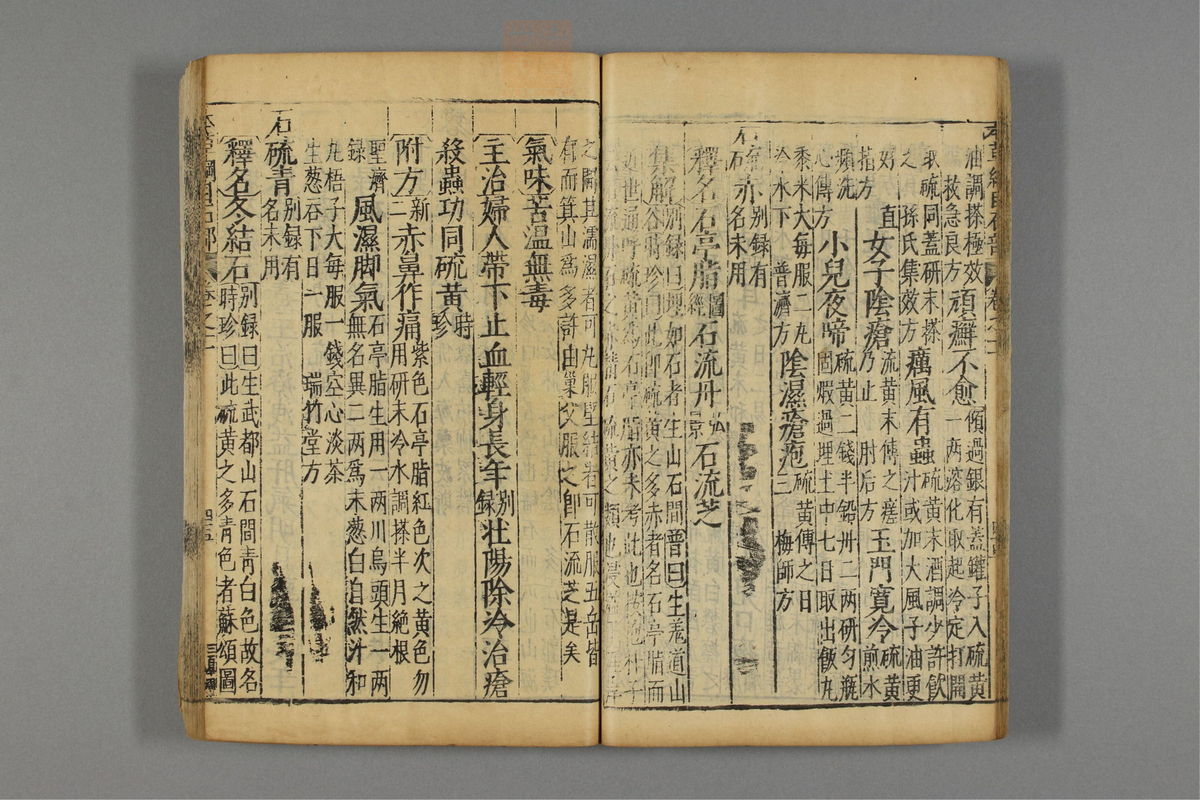 油調搽極效
救急良方頑癬不愈傾過銀有蓋罐子入硫黃
一兩溶化取起冷定打開
取硫同蓋研末搽
之孫氏集效方癘風有蟲硫黃末酒調少許飲
汁或加大風子油更
好直
指方女子陰瘡硫黃末傅之瘥
乃止肘后方玉門寬冷硫黃
煎水
頻洗
心傳方小兒夜啼硫黃二錢半鉛丹二兩研勻瓶
固煆過埋土中七日取出飯丸
黍米大每服二丸
冷水下普濟方陰濕瘡疱硫黃傅之日
三梅師方
石硫赤別錄有
名未用
釋名石亭脂圖經石流丹弘景石流芝
集解別錄曰理如石耆生山石間普曰生羌道山
谷時珍曰此即硫黃之多赤者名石亭脂而
近世通呼硫黃為石亭脂亦未考此也按抱朴子
之間其濡濕者可丸服堅結者可散服五岳皆
有而箕山為多許由巢父服之即石流芝是矣
氣味苦溫無毒
主治婦人帶下止血輕身長年別錄壯陽除冷治瘡
殺蟲功同硫黃時珍
附方新二赤鼻作痛紫色石亭脂紅色次之黃色勿
用研末冷水調搽半月絕根
聖濟
錄風濕脚氣石亭脂生用一兩川烏頭生一兩
無名異二兩為末葱白自然汁和
丸梧子大每服一錢空心淡茶
生葱吞下日一服瑞竹堂方
石硫青別錄有
名未用
釋名冬結石別錄曰生武都山石間青白色故名
時珍曰此硫黃之多青色者蘇頌圖
本草綱目石部
卷之十一
四五